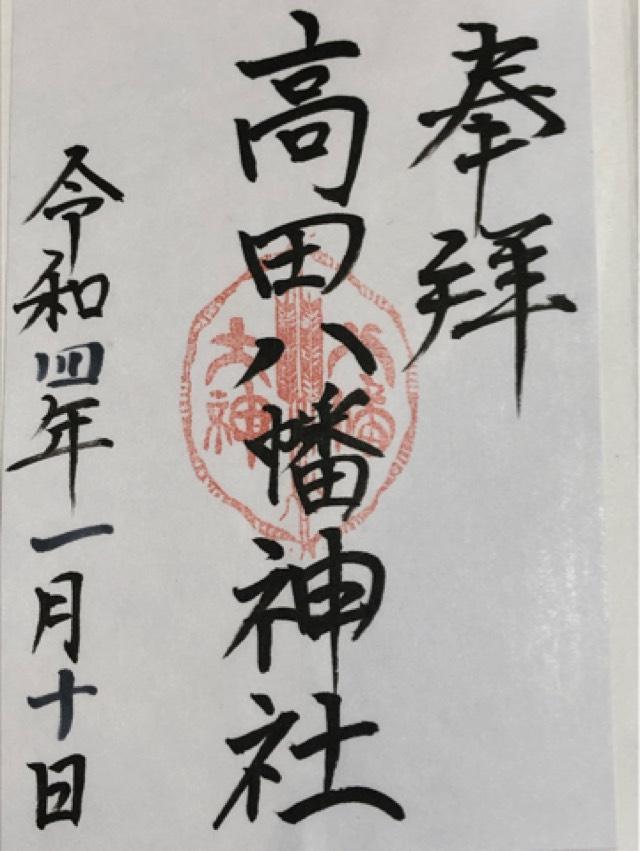 奉拝
高田八幡神社
八幡
大神
令和四年一月十日